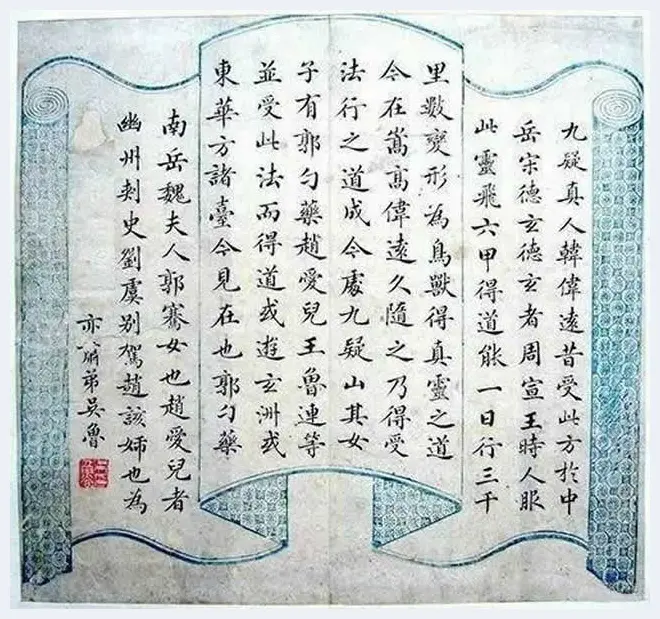 九疑真人韓偉遠昔受此方於中
岳宗德玄德玄者周宣王時人服
此靈飛六甲得道能一日行三千
里數變形為鳥獸得真靈之道
今在嵩高偉遠久隨之乃得受
法行之道成今處九疑山其女
子有郭勺藥趙愛兒王魯連等
並受此法而得道或遊玄洲或
東華方諸臺今見在也郭勺藥
南岳魏夫人郭騫女也趙愛兒者
幽州刺史劉虞别駕趙該姊也為
弟吳魯